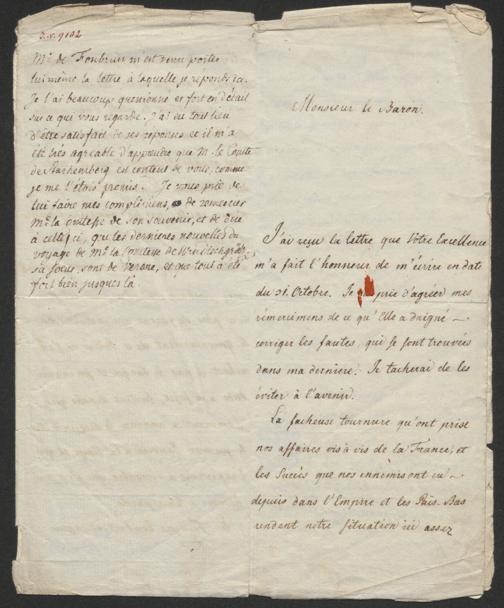 Mr. de Fonbrun m'est venu porter
lui même la lettre à laquelle je reponds ici.
Je l'ai beaucoup questionné et fort en détail
sur ce qui vous regarde. J'ai eu tout lieu
d'être satisfait de ses reponses et il m'a
été très agreable d'apprendre que M. le Comte
de Starhemberg est content de vous, comme
je me l'étois promis. Je vous prie de
lui faire mes complimens, de remercier
Me. la Comtesse de son souvenir, et de dire
à celle ci, que les dernieres nouvelles du
voyage de Me. la Comtesse de Windischgrätz
sa soeur, sont de Verone, et que tout a été
fort bien jusques là.
Monsieur le Baron.
J'ai reçu la lettre, que Votre Excellence
m'a fait l'honneur de m'écrire en date
du 31. Octobre. Je prie d'agréer mes
remercimens de ce qu'Elle a daigné
corriger les fautes, qui se sont trouvées
dans ma derniere. Je tacherai de les
éviter à l'avenir.
La facheuse tournure qu'ont prise
nos affaires vis à vis de la France, et
les Succès que nos ennemis ont eu
depuis dans l'Empire et les Païs-Bas
rendent notre Situation ici assez